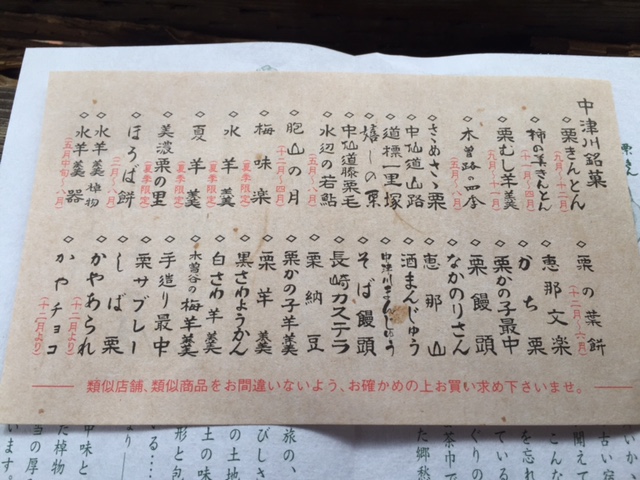 中津川銘菓
◇栗きんとん
(九月〜十二月)
◇柿の美きんとん
(十二月〜四月)
◇栗むし羊羹
(九月〜十一月)
◇木曽路の四季
(五月〜八月)
◇さめさゝ栗
◇中仙道山路
◇道標一里塚
◇嬉しの栗
◇中仙道膝栗毛
◇水辺の若鮎
(五月〜八月)
◇胞山の月
(十二月〜四月)
◇梅味楽
(夏季限定)
◇水羊羹
(夏季限定)
◇夏羊羹
(夏季限定)
◇美濃栗の里
(夏季限定)
◇ほろば餅
(三月〜八月)
◇水羊羹 棹物
◇水羊羹 器
(五月中旬〜八月)
◇栗の葉餅
(十二月〜六月)
◇恵那文楽
◇かち栗
◇栗かの子最中
◇栗饅頭
◇なかのりさん
◇恵那山
◇酒まんじゅう
◇中津川まんじゅう
◇そば饅頭
◇長崎カステラ
◇栗納豆
◇栗かの子羊羹
◇栗羊羹
◇黒さわようかん
◇白さわ羊羹
◇木曽谷の梅羊羹
◇手造り最中
◇栗サブレー
◇しば栗
◇かやあられ
(十二月より)
◇かやチョコ
(十二月より)
類似店舗、類似商品をお間違いないよう、お確かめの上お買い求め下さいませ。